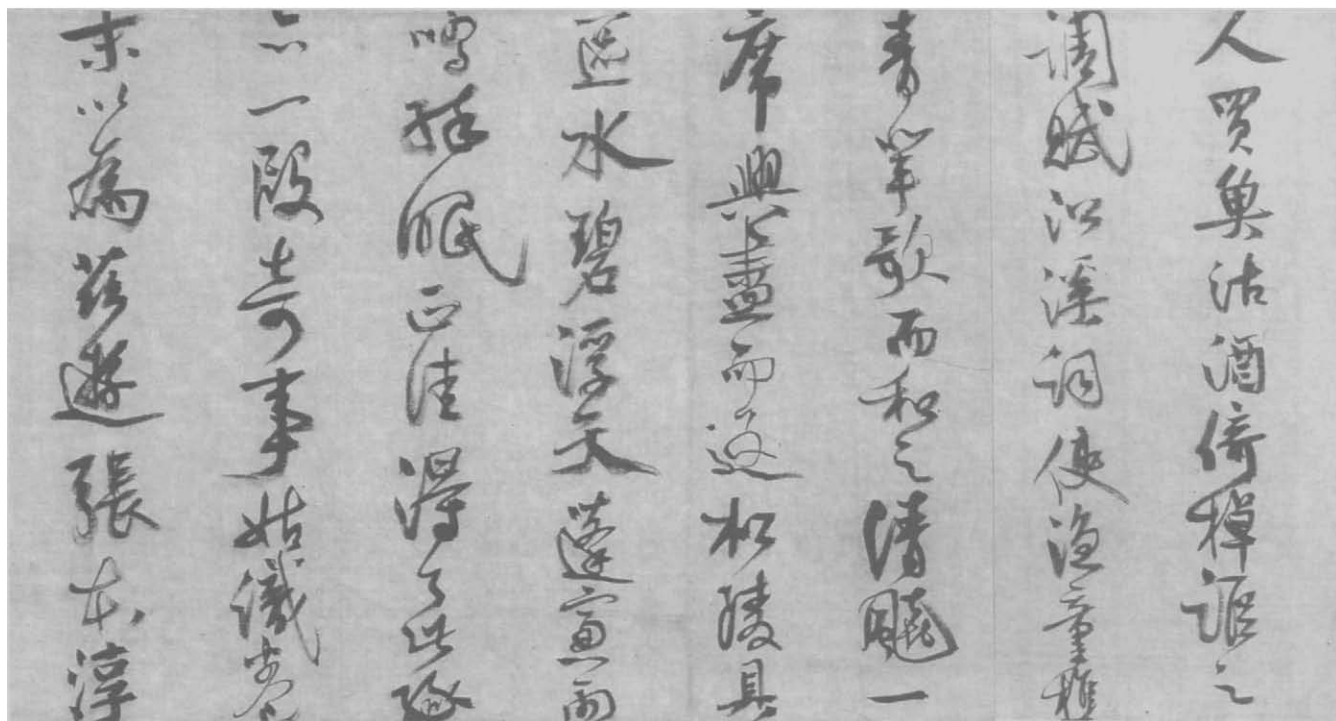 人買魚沽酒倚棹謳之
調賦溪詞使漁童樵
青歌而和之清飈一
席興盡而返松陵具
區水碧浮天蓬窗雨
鳴醉眠正佳得了此緣
亦一段奇事姑識卷
末以為茲遊張本淳